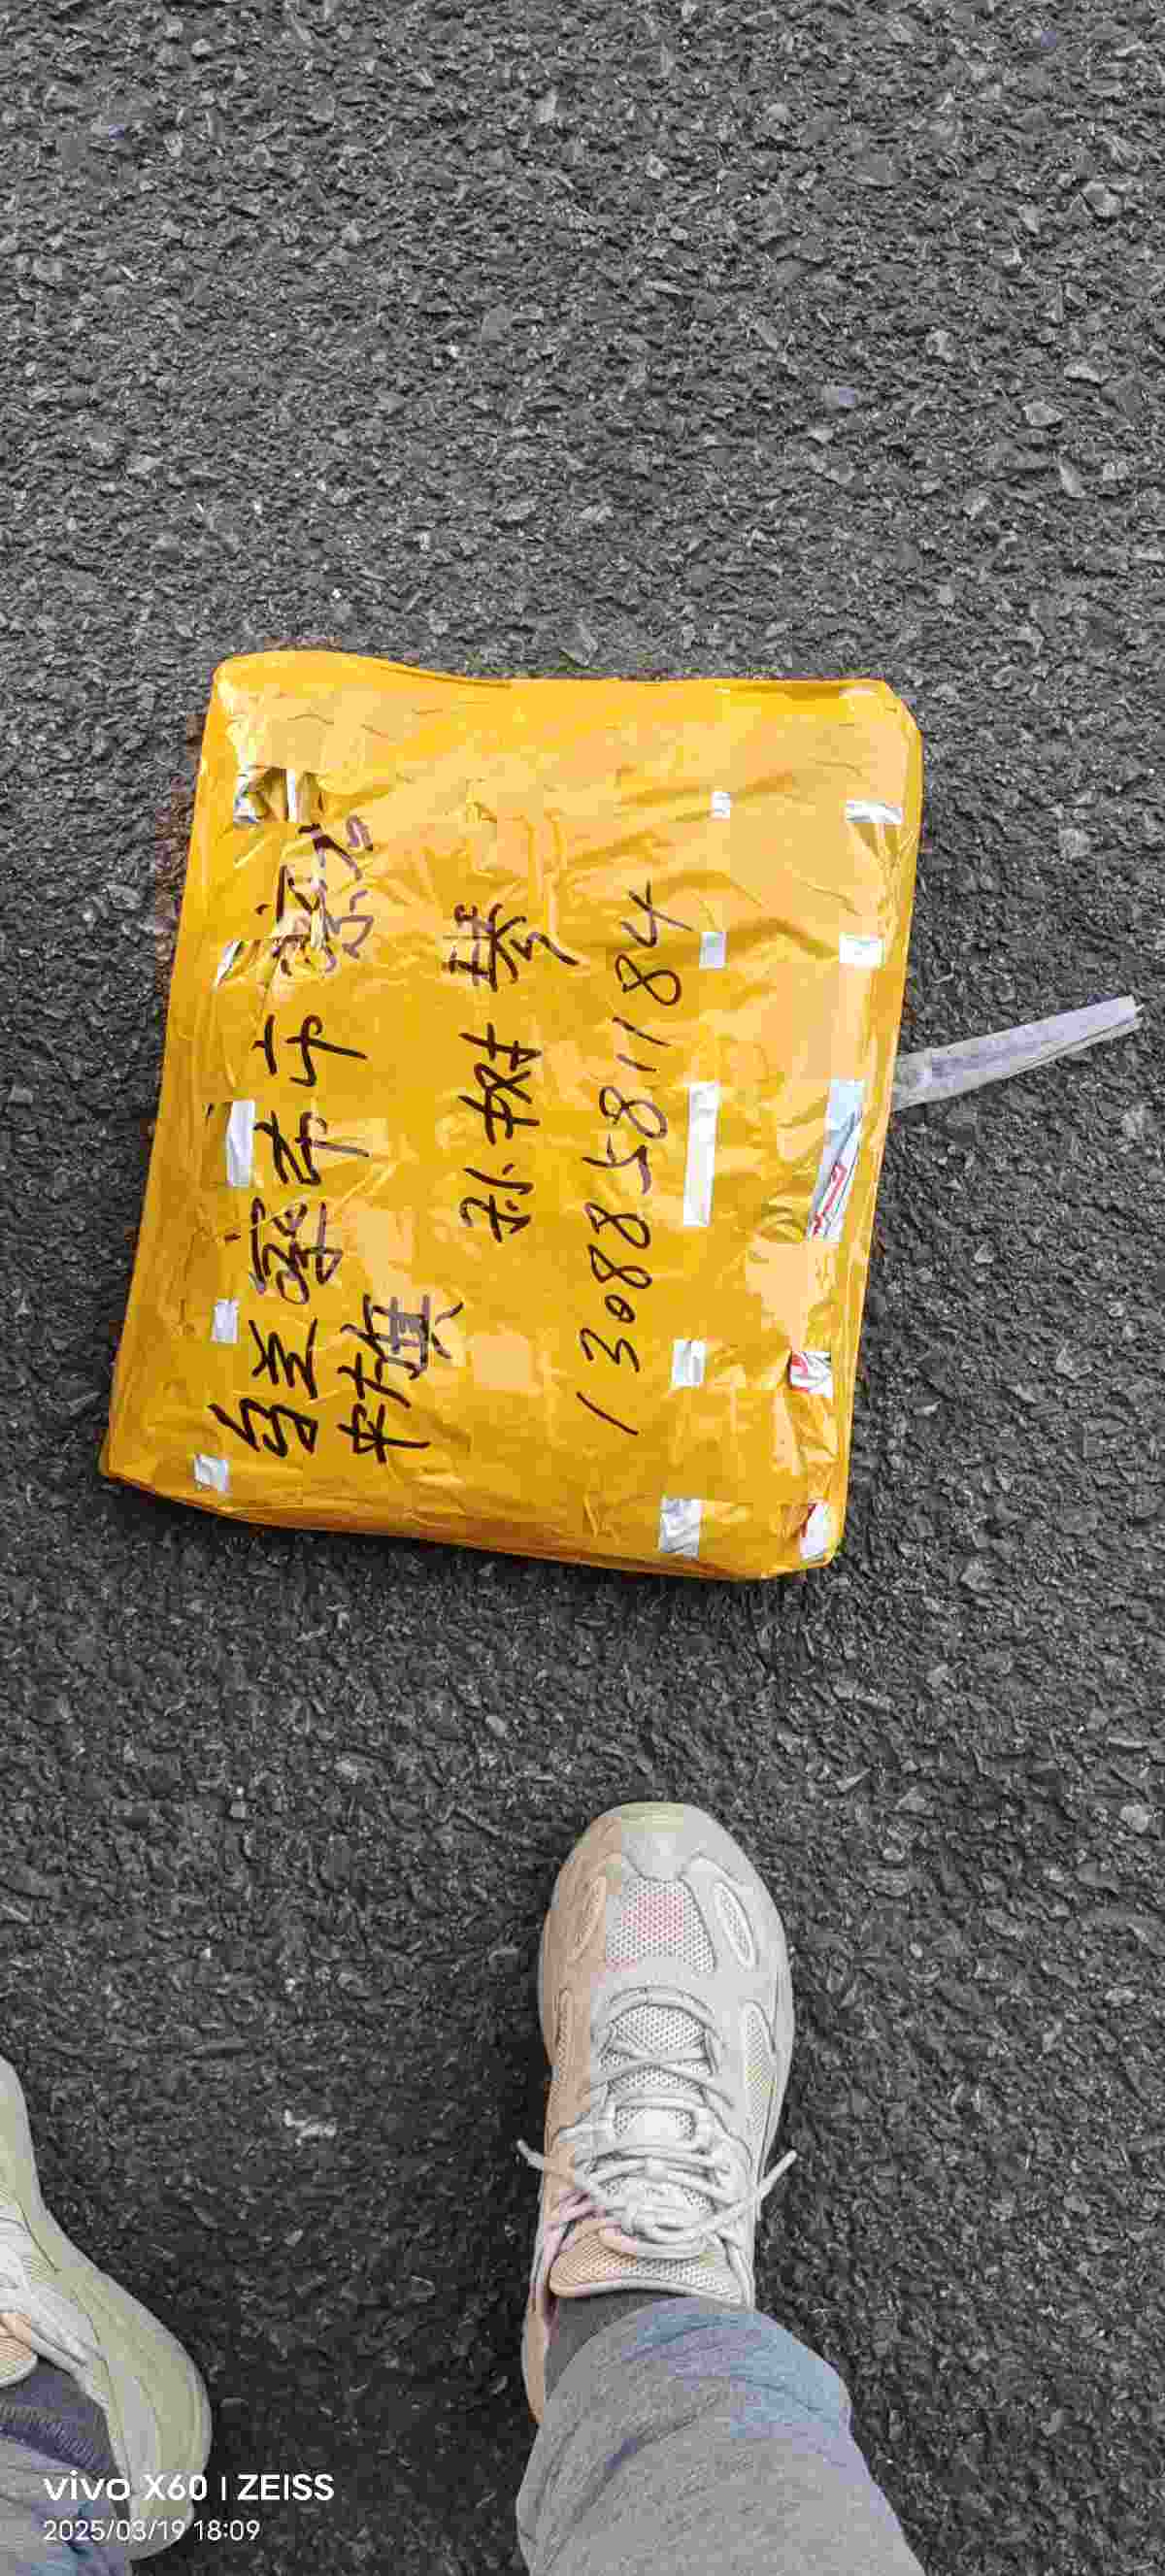 乌兰察布市 察右
中旗
孙树琴
13088581184
vivo X60 | ZEISS
2025/03/19 18:09